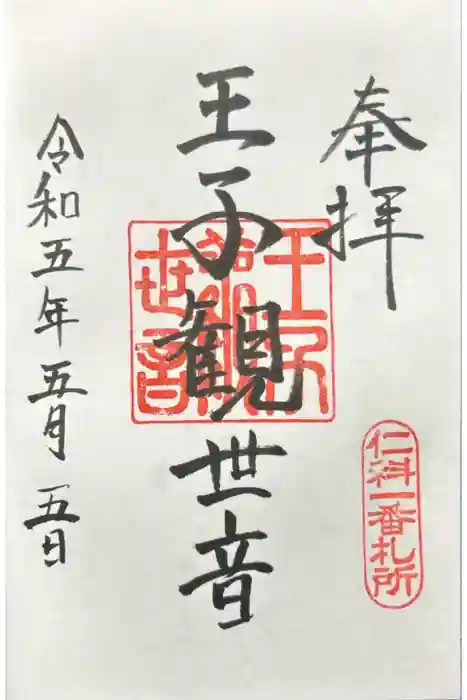 奉拝
仁科一番札所
王子観世音
王子
観
世音
令和五年五月五日